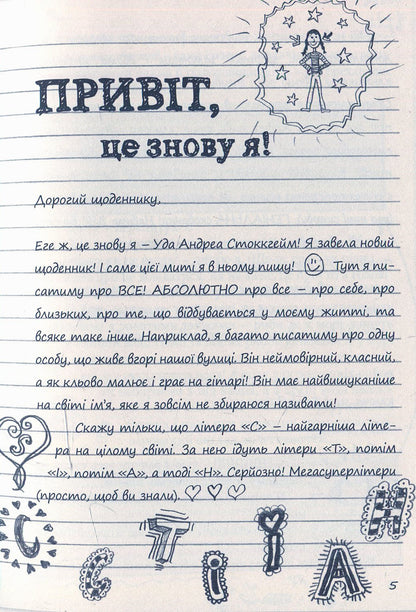 ПРИВІТ,
це знову я!
Дорогий щоденнику,
Еге ж, це знову я – Уда Андреа Стоккгейм! Я завела новий
щоденник! І саме цієї миті я в ньому пишу! Тут я пи-
сатиму про ВСЕ! АБСОЛЮТНО про все – про себе, про
близьких, про те, що відбувається у моєму житті, та
всяке таке інше. Наприклад, я багато писатиму про одну
особу, що живе вгорі нашої вулиці. Він неймовірний, класний,
а як кльово малює і грає на гітарі! Він має найвишуканіше
на світі ім’я, яке я зовсім не збираюся називати!
Скажу тільки, що літера «С» – найгарніша літе-
ра на цілому світі. За нею ідуть літери «Т», потім
«І», потім «А», а тоді «Н». Серйозно! Мегасуперлітери
(просто, щоб ви знали).
С Є Т І Ї А Н
5